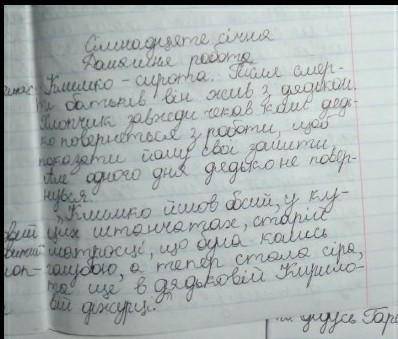 Сімнадцяте січня
Домашня робота
Климко – сирота. Після смер-
ти батьків він жив з дядьком.
Хлопчик завжди чекав коли дядь-
ко повернеться з роботи, щоб
показати йому свої зошити,
але одного дня дядько не повер-
нувся.
„Климко йшов босий, у ку-
ций цих штанчатах, старій
матросці, що була колись
голубою, а тепер стала сіра,
та ще в дядьковій Кирило-
вій діжурці."